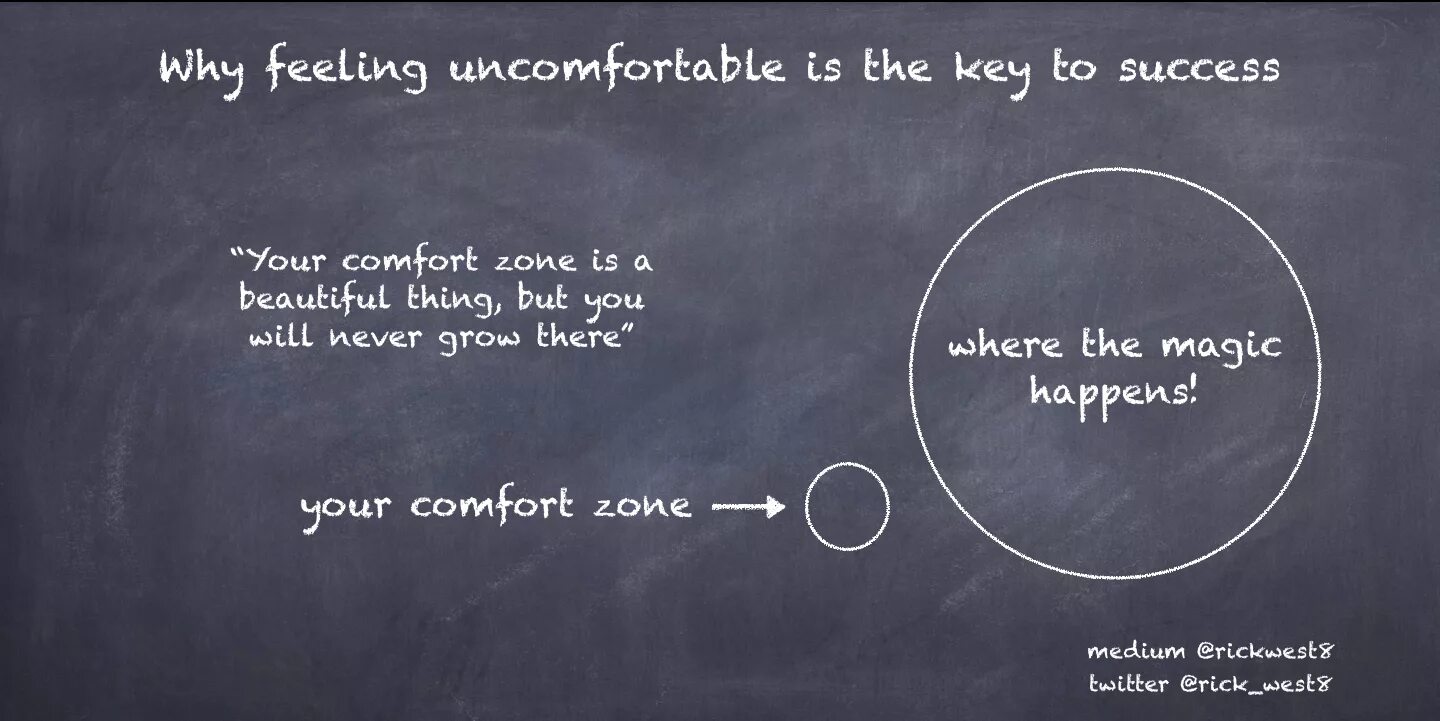 Why feeling uncomfortable is the key to success
“Your comfort zone is a
beautiful thing, but you
will never grow there”
where the magic
happens!
your comfort zone
medium @rickwest8
twitter @rick_west8